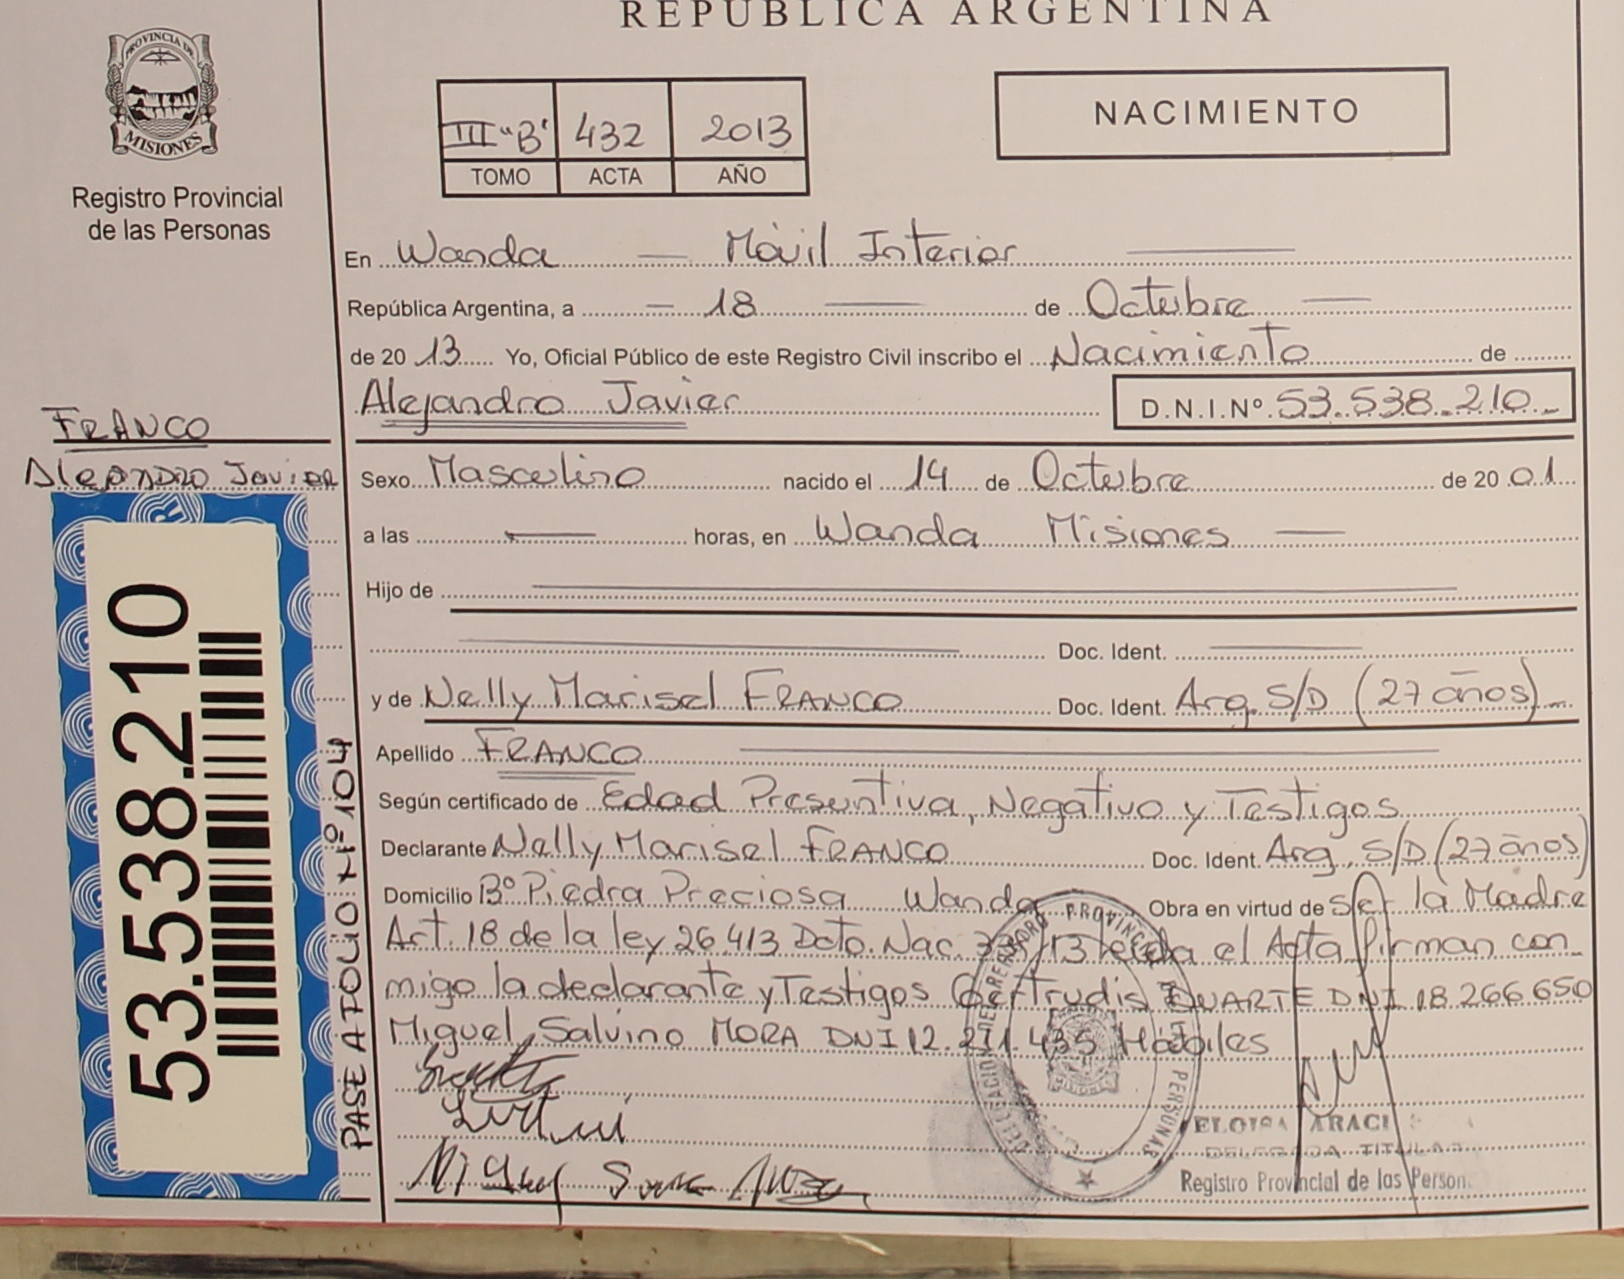 REPÚBLICA ARGENTINA
PROVINCIA DE
MISIONES
Registro Provincial
de las Personas
III "B" 432 2013
TOMO ACTA AÑO
NACIMIENTO
En Wanda — Móvil Interior —
República Argentina, a — 18 — de Octubre —
de 20 13 Yo, Oficial Público de este Registro Civil inscribo el Nacimiento de
Alejandro Javier D.N.I.Nº 53.538.210
FRANCO
Alejandro Javier
Sexo Masculino nacido el 14 de Octubre de 20 01
a las — horas, en Wanda Misiones —
Hijo de —
— Doc. Ident. —
y de Nelly Marisel FRANCO Doc. Ident. Arg. S/D (27 años)
Apellido FRANCO —
Según certificado de Edad Presuntiva, Negativo y Testigos
Declarante Nelly Marisel FRANCO Doc. Ident. Arg. S/D (27 años)
Domicilio Bº Piedra Preciosa Wanda Obra en virtud de Ser la Madre
Art. 18 de la ley 26.413 Dcto. Nac. /13 leída el Acta firman con
migo la declarante y Testigos Gertrudis DUARTE DNI 18.266.650
Miguel Salvino MORA DNI 12.271.435 Hábiles
53.538.210
PASE A FOLIO Nº 104
ELOISA ARACI
DELEGADA TITULAR
Registro Provincial de las Person